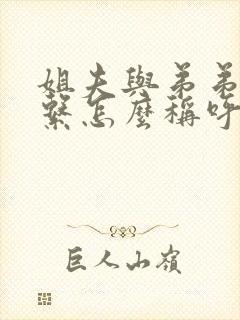 姐夫與弟弟
繫怎麼稱呼
巨人山嶺